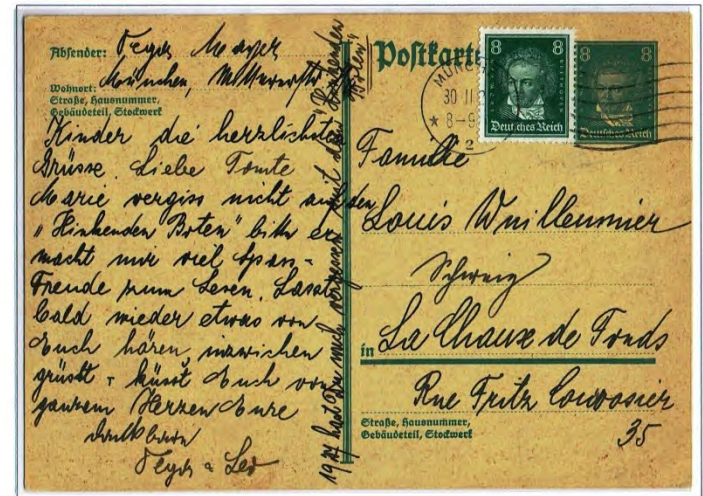 Absender:
Mayer
München,
Wohnort:
Straße, Hausnummer,
Gebäudeteil, Stockwerk
Kinder die herzlichsten
Grüsse. Liebe Tante
Marie vergiss nicht an den
"Hinkenden Boten" bitte er
macht mir viel Spass =
Freude zum Lesen. Lasst
bald wieder etwas von
Euch hören, inzwischen
grüsst + küsst Euch von
ganzem Herzen Eure
dankbaren
& Leo
hast Du mich vergessen mit dem "Hinkenden
Boten"
Postkarte
MÜNCHEN
30 11
8-9
2
8 8
Deutsches Reich
8 8
Deutsches Reich
Familie
Louis Wuilleumier
Schweiz
in La Chaux de Fonds
Rue Fritz Courvoisier
35
Straße, Hausnummer,
Gebäudeteil, Stockwerk